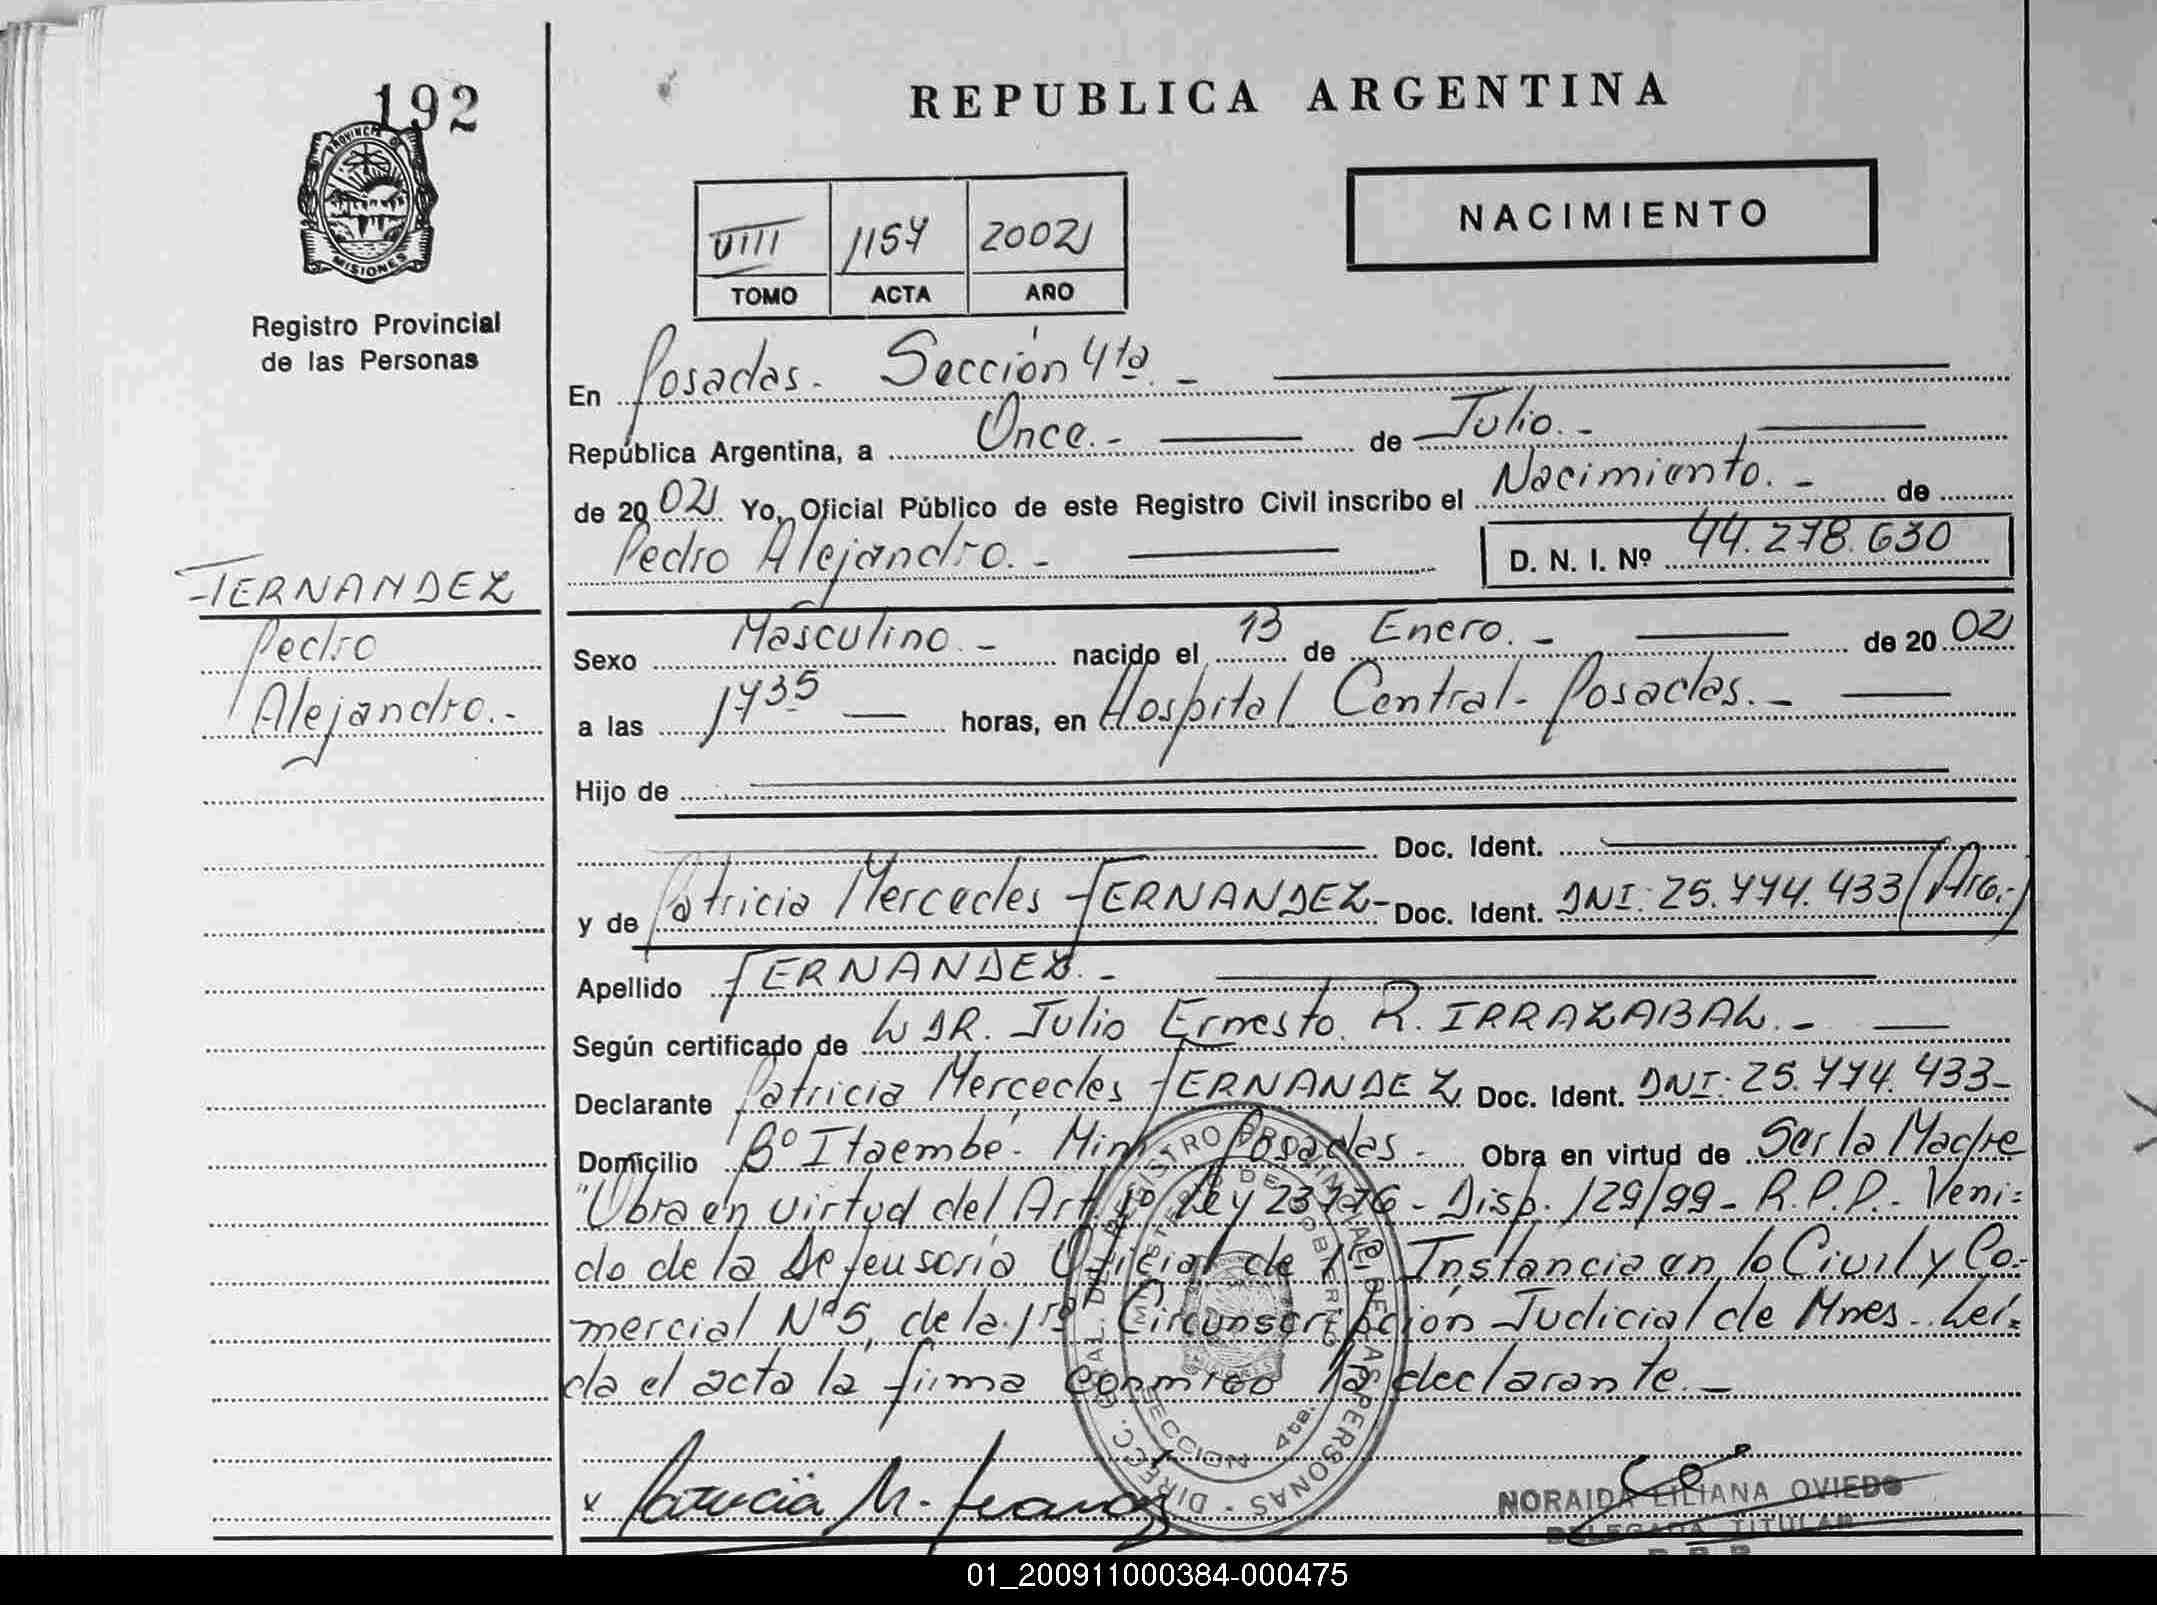 192
REPUBLICA ARGENTINA
PROVINCIA DE
MISIONES
Registro Provincial
de las Personas
VIII 1157 2002
TOMO ACTA AÑO
NACIMIENTO
En Posadas.- Sección 4ta.-
República Argentina, a Once.- de Julio.-
de 2002 Yo, Oficial Público de este Registro Civil inscribo el Nacimiento.- de
Pedro Alejandro.- D. N. I. Nº 44.278.630
FERNANDEZ
Pedro
Alejandro.-
Sexo Masculino.- nacido el 13 de Enero.- de 2002
a las 1735 horas, en Hospital Central- Posadas.-
Hijo de
Doc. Ident.
y de Patricia Mercedes FERNANDEZ- Doc. Ident. DNI: 25.774.433 (Arg.-)
Apellido FERNANDEZ.-
Según certificado de DR. Julio Ernesto R. IRRAZABAL.-
Declarante Patricia Mercedes FERNANDEZ Doc. Ident. DNI: 25.774.433-
Domicilio Bº Itaembé- Miní Posadas- Obra en virtud de Ser la Madre
"Obra en virtud del Art. 1º Ley 23776- Disp. 129/99- R.P.P.- Veni=
do de la Defensoría Oficial de 1ra Instancia en lo Civil y Co-
mercial Nº5, de la 1ra Circunscripción Judicial de Mnes.- Leí=
da el acta la firma conmigo la declarante.-
DIRECC. GRAL. DEL REGISTRO PROVINCIAL DE LAS PERSONAS
MINISTERIO DE GOBIERNO
SECCION 4ta.
x Patricia M. Fernandez
NORAIDA LILIANA OVIEDO
DELEGADA TITULAR
01_200911000384-000475